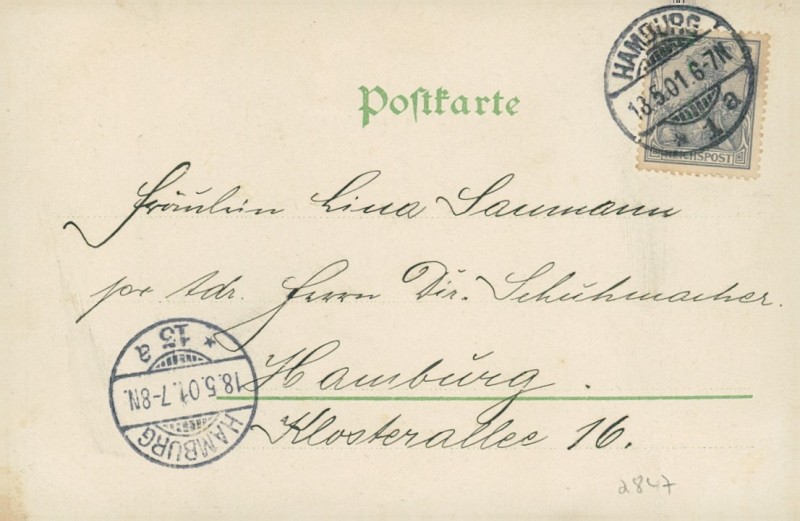 Postkarte
HAMBURG
18.5.01.6-7N
* 1 a
REICHSPOST
Fräulein Lina Saumann
pr Adr. Herrn Dir. Schuhmacher.
Hamburg.
Klosterallee 16.
* 15 a
18.5.01.7-8N.
HAMBURG
2847